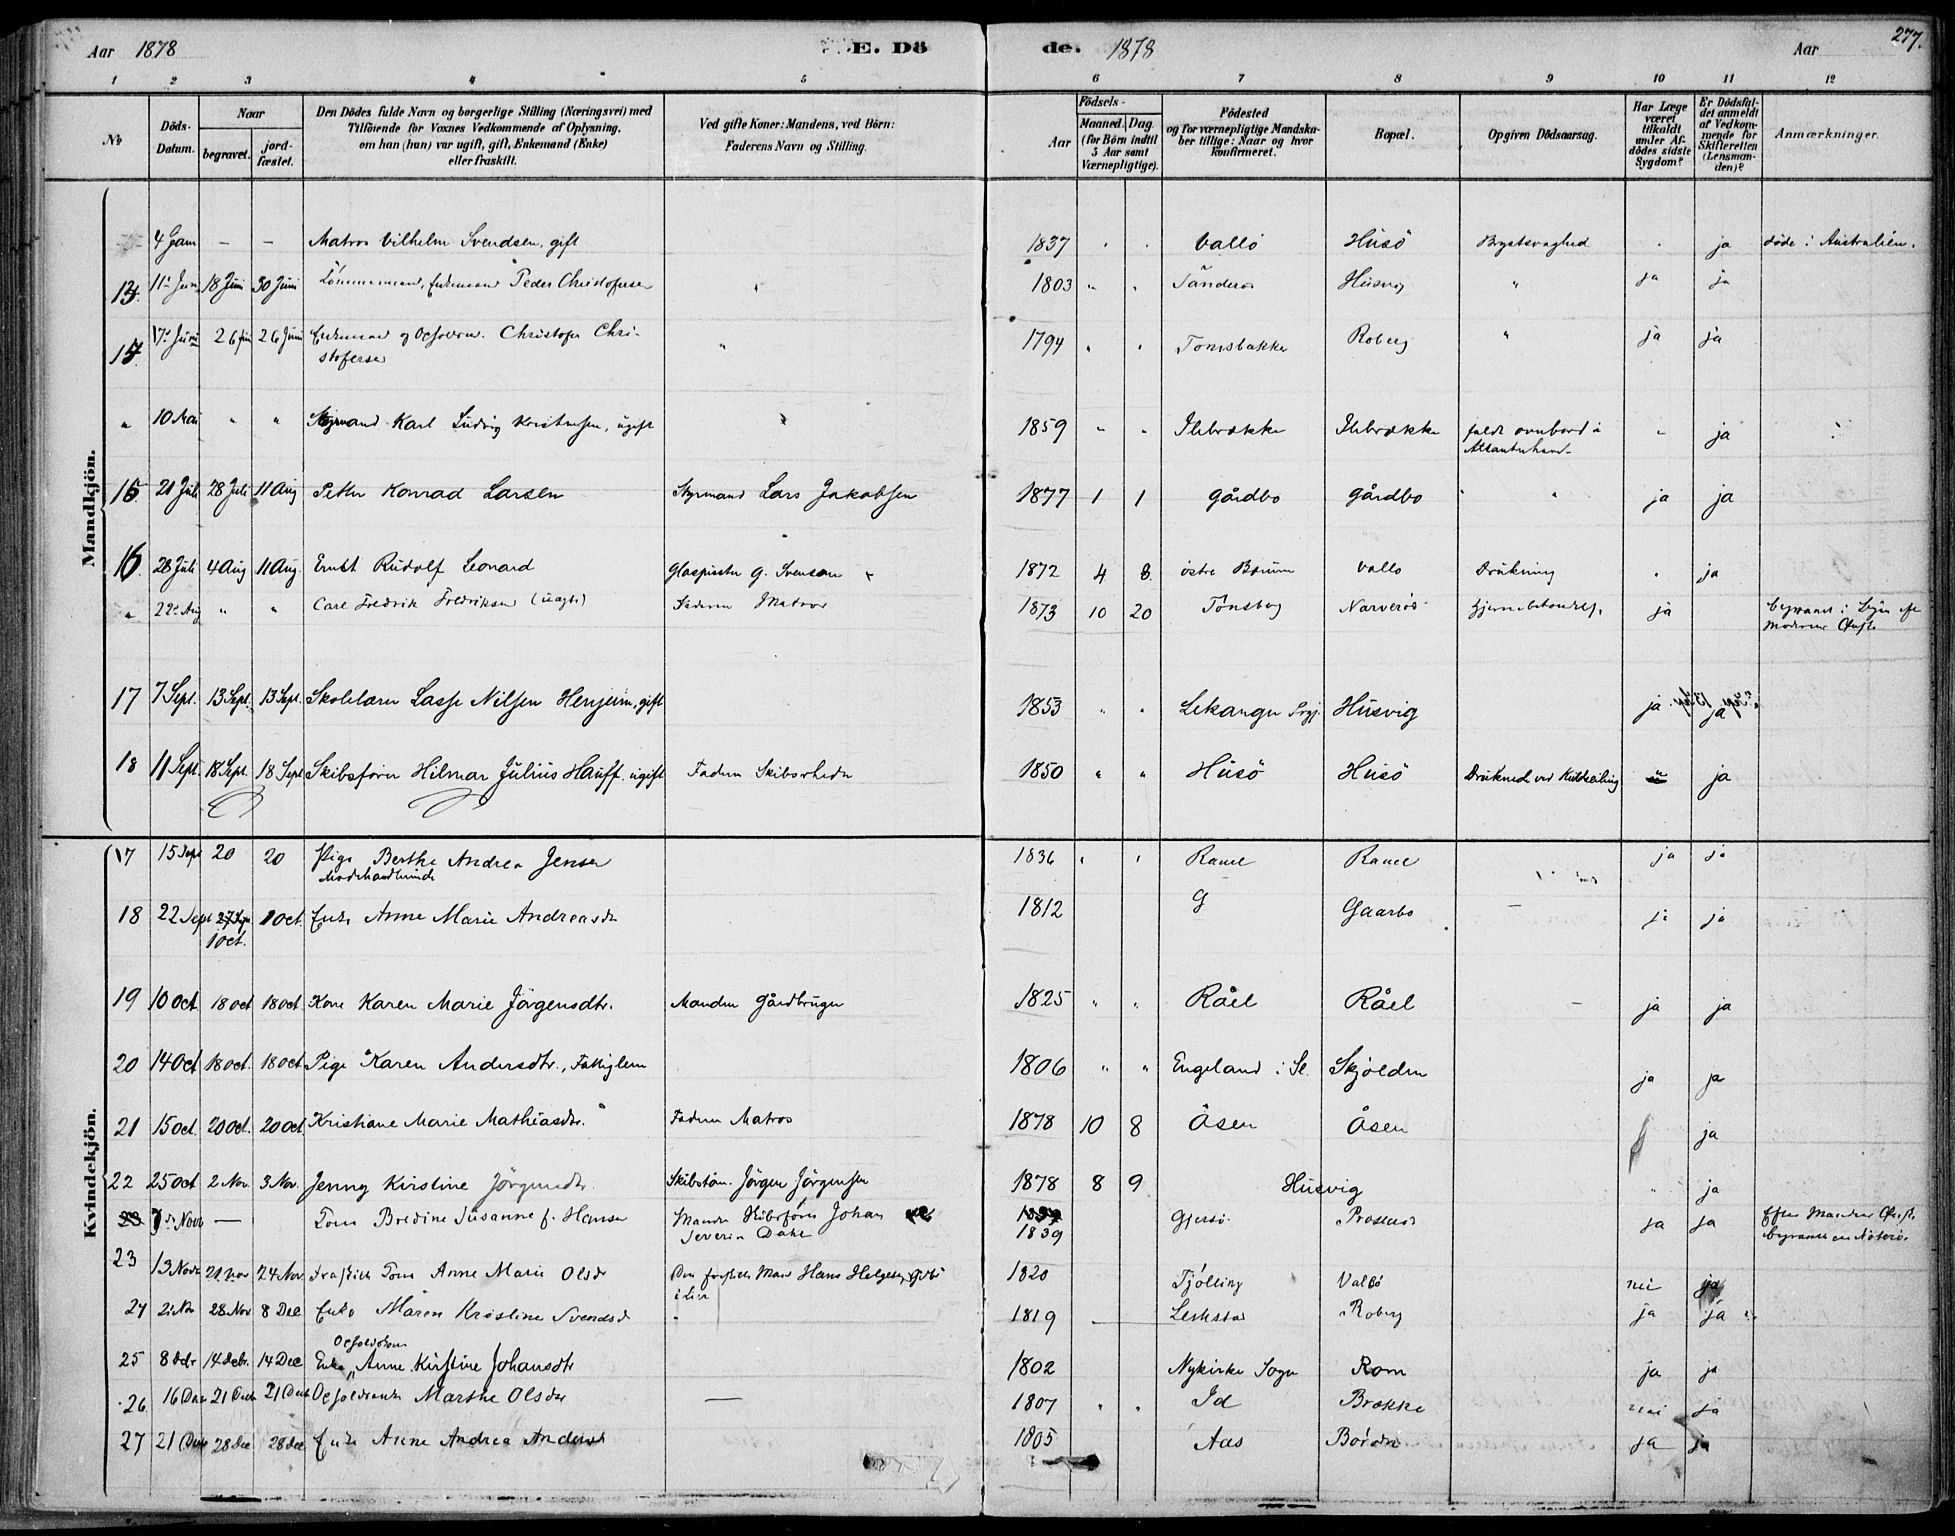 Aar 1878 E. Dö de. 1878 Aar 277.
1 2 3 4 5 6 7 8 9 10 11 12
No
Döds-Datum.
Naar
begravet.
jord-fæstet.
Den Dödes fulde Navn og borgerlige Stilling (Næringsvei) med
Tilföiende for Voxnes Vedkommende af Oplysning,
om han (hun) var ugift, gift, Enkemand (Enke)
eller fraskilt.
Ved gifte Koner: Mandens, ved Börn:
Faderens Navn og Stilling.
Födsels-
Aar
Maaned.
Dag.
(for Börn indtil
5 Aar samt
Værnepligtige).
Födested
og for værnepligtige Mandska-
ber tillige: Naar og hvor
konfirmeret.
Bopæl.
Opgiven Dödsaarsag.
Har Læge
været
tilkaldt
under Af-
dödes sidste
Sygdom?
Er Dödsfal-
det anmeldt
af Vedkom-
mende for
Skifteretten
(Lensman-
den)?
Anmærkninger.
Mandkjön.
4 Jan – – Matros Vilhelm Svendsen, gift 1837 Vallö Husö Brystsvaghed ja döde i Australien.
11 Juni 18 Juni 30 Juni Enkemand Peder Christofersen 1803 " " Husvig " ja ja
17 Juni 26 Juni 26 Juni Enkemand og Christofer Chri-
stofersen " 1794 " " Tomsbakke Roberg " ja ja
" 10 Mai " " Styrmand Karl Ludvig Kristensen, ugift 1859 " " Ilebrække Ilebrække faldt overbord i
Atlanterhav. " ja
15 21 Juli 28 Juli 11 Aug Petter Konrad Larsen Styrmand Lars Jakobsen 1877 1 1 Gårdbo Gårdbo " ja ja
16 28 Juli 4 Aug 11 Aug. Ernst Rudolf Leonard G. Svenson 1872 4 8 östre Bærum Vallö Drukning ja
" 22 Aug " " Carl Fredrik Fredriksen Faderen Matros 1873 10 20 Tönsberg Narverös ja
17 7 Sept. 13 Sept. 13 Sept. Skolelærer Lasse Nilsen Henjum, gift 1853 " " Lekanger Husvig ja ja
18 11 Sept. 18 Sept. 18 Sept Skibsförer Hilmar Julius Hauff. ugift Faderen Skibsrheder 1850 " " Husö Husö Drukned ved Kuldseiling " ja
Kvindekjön.
17 15 Sept 20 20 Pige Berthe Andrea Jensen
Modehandlerinde 1836 " " Ramel Ramel ja ja
18 22 Sept 27 Sept 1 oct. Enke Anne Marie Andreasdr
1 oct. 1812 G Gaarbo – ja ja
19 10 oct 18 oct 18 oct. Kone Karen Marie Jörgensdtr. Manden Gårdbruger 1825 " " Råel Råel – ja ja
20 14 Oct 18 oct. 18 oct. Pige Karen Andersdtr., Fattiglem 1806 " " Engeland i Sl. Skjölden ja ja
21 15 oct. 20 oct. 20 oct. Kristiane Marie Mathiasdtr. Faderen Matros 1878 10 8 Åsen Åsen ja
22 25 oct 2 Nov. 3 Nov. Jenny Kirstine Jörgensdtr. Skibstöm. Jörgen Jörgensen 1878 8 9 Husvig " ja
7 Novb – Kone Bredine Susanne f. Hansen Manden Skibsförer Johan
Severin Dahl 1839 Gjersö ja ja Efter Mandens
begravet en Nöterö.
23 13 Novb 21 Nov 24 Nov. Fraskilt Kone Anne Marie Olsdr Den fraskilte Mand Hans Helgesen
i Lier 1820 Tjölling Vallö nei ja
24 21 Nov 28 Nov 8 Dec Enke Maren Kristine Svendsd " 1819 – Roberg ja ja
25 8 Decbr 14 Decbr. 14 Dec Enke Anne Kirstine Johansdtr 1802 Nykirke Sogn Rom ja ja
26 16 Dec 21 Decb 21 Decb Marthe Olsdtr – 1807 " " Id Brække nei ja
27 21 Decb 28 Dec 28 Dec Enke Anne Andrea Andersd 1805 Aas ja ja